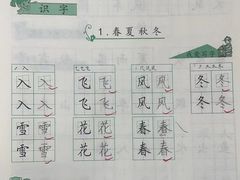 识字
1.春夏秋冬
入 入 飞 飞 风 风 冬 冬
入 入 飞 飞 风 风 冬 冬
雪 雪 花 花 春 春
雪 雪 花 花 春 春